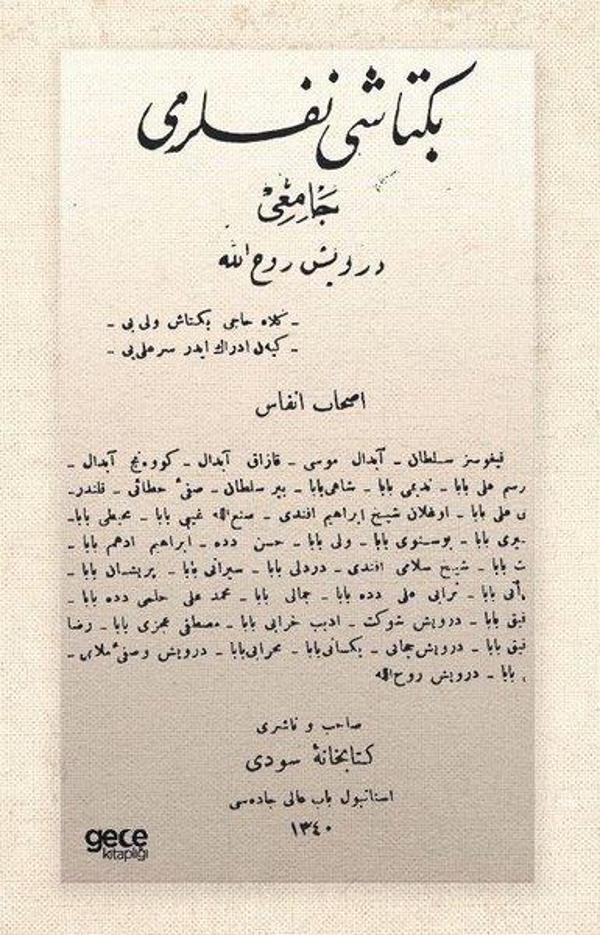 بکتاشی نفسلرمی
جَامِعِیْ
درویش روح الله
ـ کلاه حاجی بکتاش ولی بی ـ
ـ کیه‌ن ادراك ایدر سر علی بی ـ
اصحاب انفاس
قیغوسز سلطان ـ آبدال موسی ـ قازاق آبدال ـ کووه‌نج آبدال ـ
رسم علی بابا ـ ندیمی بابا ـ شاهی بابا ـ پیر سلطان ـ صفیٔ خطائی ـ قلندر ـ
ی علی بابا ـ اوغلان شیخ ابراهیم افندی ـ صنع الله غیبی بابا ـ محیطی بابا ـ
یری بابا ـ بوسنوی بابا ـ ولی بابا ـ حسن دده ـ ابراهیم ادهم بابا ـ
ت بابا ـ شیخ سلامی افندی ـ دردلی بابا ـ سیرانی بابا ـ پریشان بابا ـ
أتی بابا ـ ترابی علی دده بابا ـ جمالی بابا ـ محمد علی حلمی دده بابا ـ
فیق بابا ـ درویش شوکت ـ ادیب خرابی بابا ـ مصطفی عجزی بابا ـ رضا
فیق بابا ـ درویش حجابی ـ یکسانی بابا ـ محرابی بابا ـ درویش وصفیٔ ملامی ـ
بابا ـ درویش روح الله
صاحب و ناشری
کتابخانۀ سودی
استانبول باب عالی جاده‌سی
١٣٤٠
gece
kitaplığı